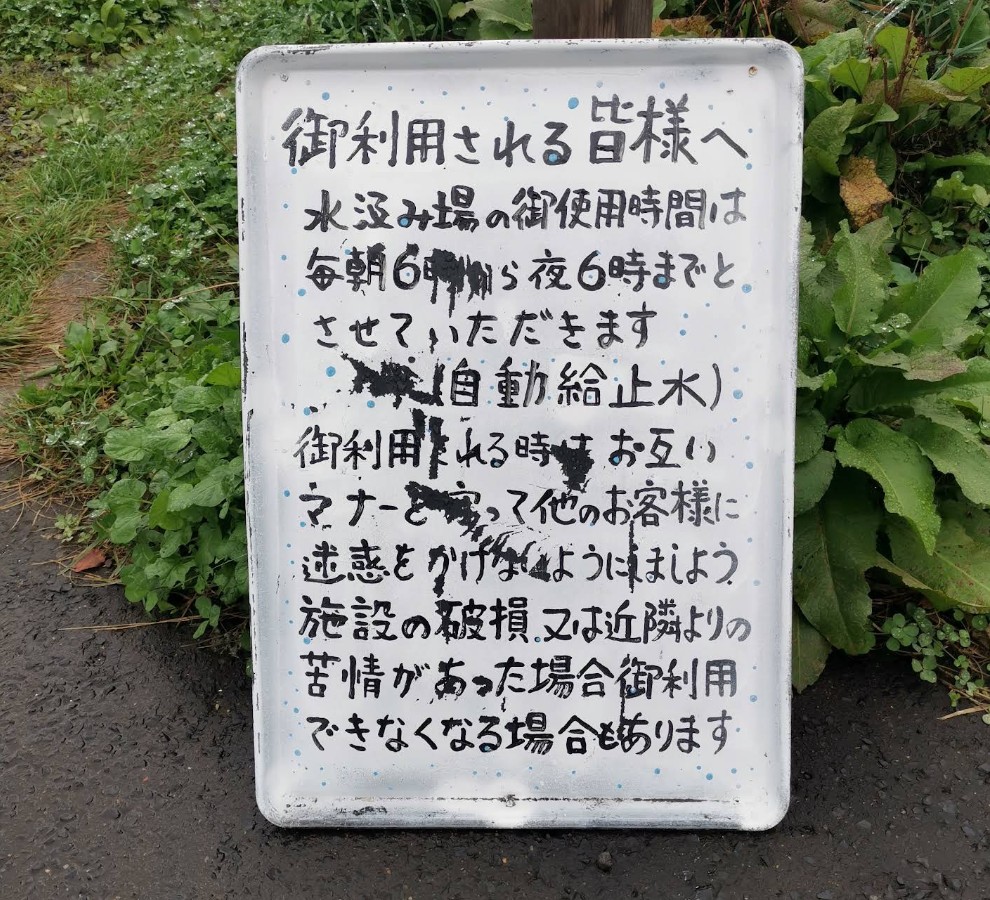 御利用される皆様へ
水汲み場の御使用時間は
毎朝6時から夜6時までと
させていただきます
(自動給止水)
御利用される時は お互い
マナーを守って他のお客様に
迷惑をかけないようにしましよう
施設の破損又は近隣よりの
苦情があった場合御利用
できなくなる場合もあります